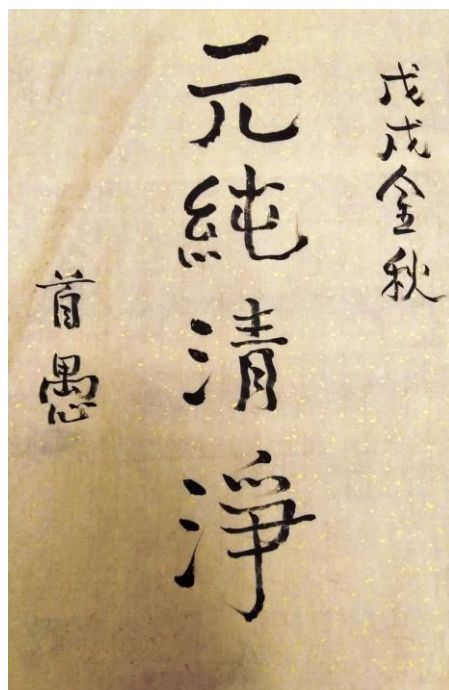 戊戌金秋
元純清淨
首愚